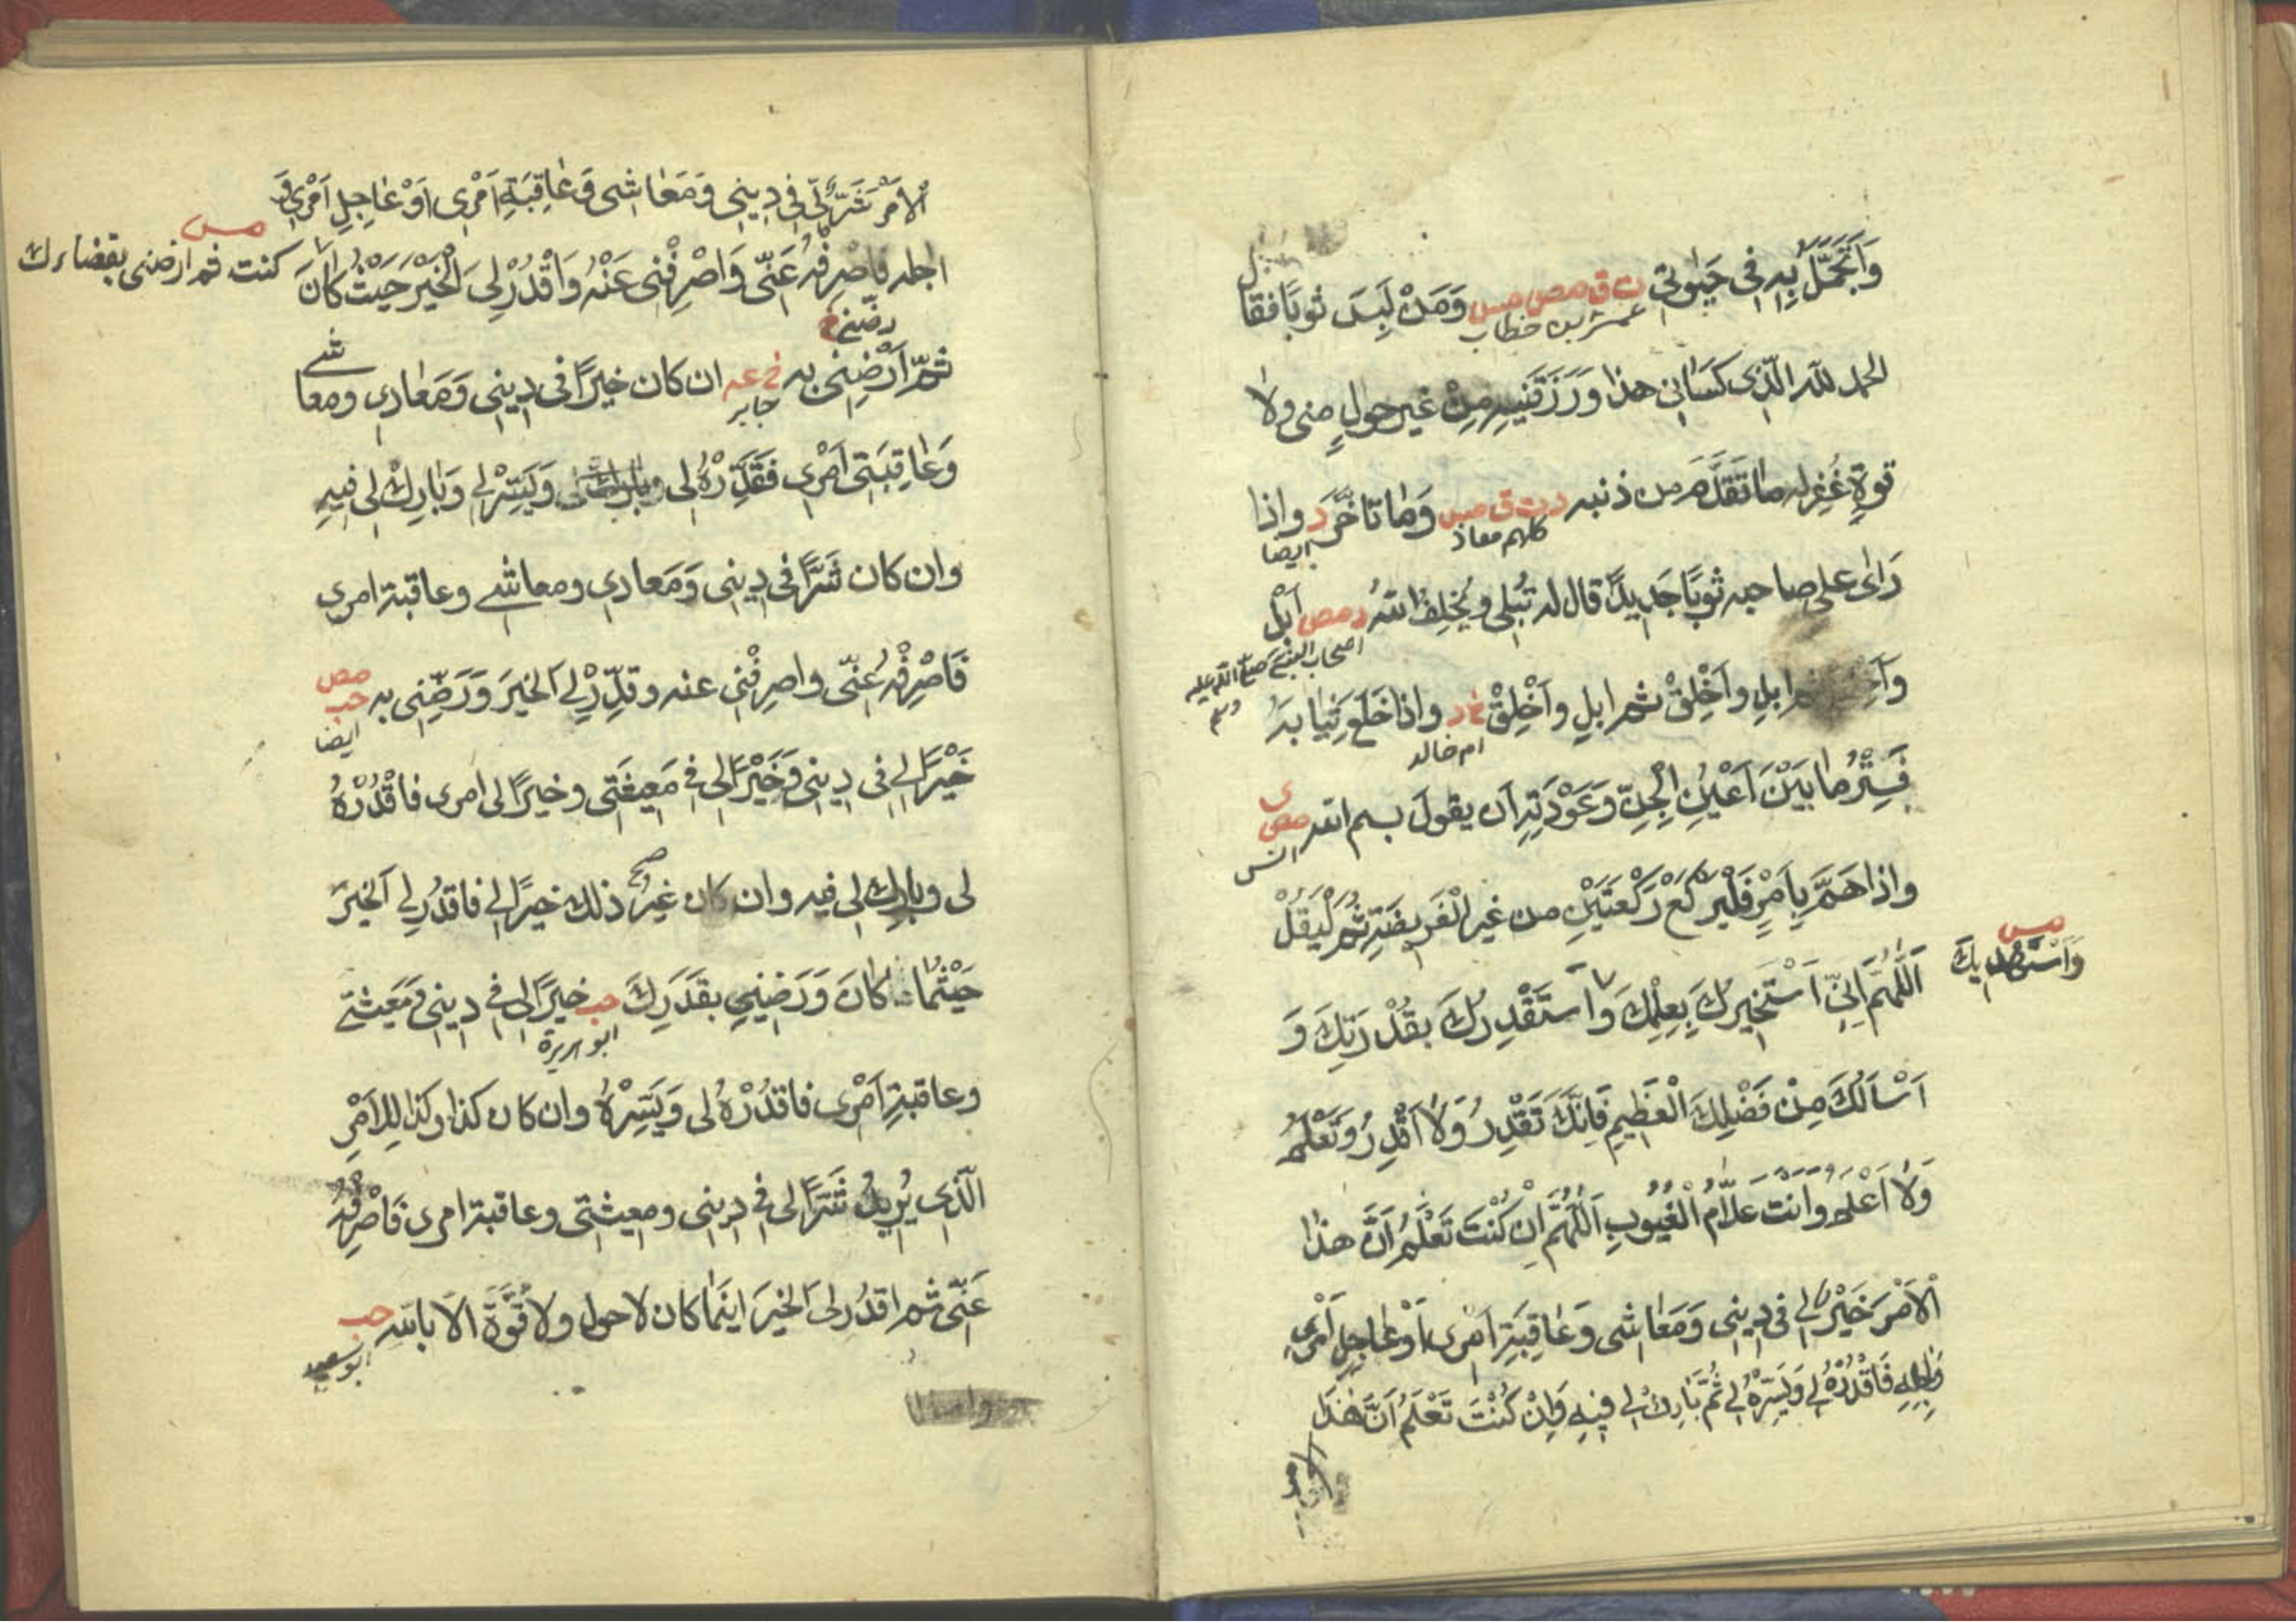 وَاَتَجَمَّلُ بِهِ فِى حَيٰوتِى ت ق مص مس وَمَنْ لَبِسَ ثوبًا فقال
عمر بن خطاب
الحمد لله الَّذِى كَسَانِى هذا وَرَزَقَنِيهِ مِنْ غيرِ حولٍ منى ولا
قوةٍ غُفِرله ما تَقَدَّمَ من ذنبه د ت ق مس وَمَا تَاَخَّرَ د واذا
كلهم معاذ
ايضا
رَاٰى على صاحبه ثوبًا جَدِيدًا قال له تُبْلِى ويُخْلِفُ اللهُ د مص اَبْلِ
اصحاب النبى صلى الله عليه وسلم
ثم ابلِ واَخْلِقْ ثم ابلِ واَخْلِقْ خ د واذا خَلَعَ ثِيَابَهُ
ام خالد
فَسِتْرُ مَا بَيْنَ اَعْيُنِ الْجِنِّ وَعَوْرَتِهِ اَن يقولَ بسم الله مص ى
انس
واذا هَمَّ بِاَمْرٍ فَلْيَرْكَعْ رَكْعَتَيْنِ من غيرِ الْفَرِيضَةِ ثُمَّ لْيَقُلْ
اَللّٰهُمَّ اِنِّى اَسْتَخِيرُكَ بِعِلْمِكَ وَاَسْتَقْدِرُكَ بقُدْرَتِكَ وَ
مس
وَاَسْتَهْدِيكَ
اَسْاَلُكَ مِنْ فَضْلِكَ الْعَظِيمِ فَاِنَّكَ تَقْدِرُ وَلَا اَقْدِرُ وَتَعْلَمُ
وَلَا اَعْلَمُ وَاَنْتَ عَلَّامُ الْغُيُوبِ اَللّٰهُمَّ اِنْ كُنْتَ تَعْلَمُ اَنَّ هذا
الْاَمْرَ خَيْرٌ لِى فى دِينِى وَمَعَاشِى وَعَاقِبَةِ اَمْرِى اَوْ عَاجِلِ اَمْرِى
وَاٰجِلِهِ فَاقْدُرْهُ لِى وَيَسِّرْهُ لِى ثُمَّ بَارِكْ لِى فِيهِ وَاِنْ كُنْتَ تَعْلَمُ اَنَّ هٰذَا
الامر
الْاَمْرَ شَرٌّ لِّى فى دِينِى وَمَعَاشِى وَعَاقِبَةِ اَمْرِى اَوْ عَاجِلِ اَمْرِى وَ
اجله فاصرِفْهُ عَنِّى وَاصْرِفْنِى عَنْهُ وَاقْدُرْ لِىَ الْخَيْرَ حَيْثُ كَانَ
مس
كنت ثم ارضنى بقضاءك
رضنى خ
ثُمَّ اَرْضِنِى به خ عه ان كان خيرًا فى دِينِى وَمَعَادِى ومعاشى
جابر
وَعَاقِبَتِى اَمْرِى فَقَدِّرْهُ لى وَيَسِّرْ لِى وَبَارِكْ لى فِيهِ
وان كان شَرًّا فى دِينِى وَمَعادى ومعاشى وعاقبة امرى
فَاصْرِفْهُ عَنِّى واصرِفْنِى عنه وقَدِّرْ لِى اَلخيرَ وَرَضِّنِى به مص حب
ايضا
خَيْرًا لِى فى دِينِى وَخَيْرًا لى فى مَعِيشَتِى وخيرًا لى امرى فاقْدُرْهُ
لى وبارِك لى فيه وان كان غيرُ ذلك خيرًا لى فاقدُر لى اَلخيرَ
صح
حَيْثُمَا كَانَ وَرَضِّنِى بقَدَرِكَ حب خيرًا لى فى دِينِى وَمَعِيشَتِى
ابو هريرة
وعاقبةِ اَمْرِى فاقدُرْهُ لى وَيَسِّرْهُ وان كان كذا وكذا لِلاَمْرِ
الَّذِى يُرِيدُ شَرًّا لى فى دِينِى ومعِيشَتِى وعاقبة امرى فَاصْرِفْهُ
عَنِّى ثم اقدُر لِىَ الخيرَ اينَمَا كان لا حول ولا قُوَّةَ الا بالله حب
ابو سعيد